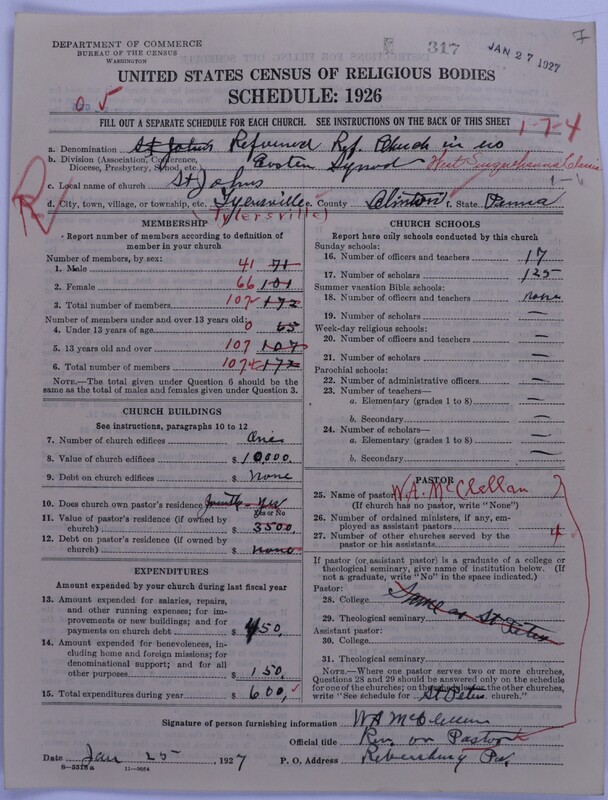 DEPARTMENT OF COMMERCE
BUREAU OF THE CENSUS
WASHINGTON
317
JAN 27 1927
7
UNITED STATES CENSUS OF RELIGIOUS BODIES
SCHEDULE: 1926
FILL OUT A SEPARATE SCHEDULE FOR EACH CHURCH. SEE INSTRUCTIONS ON THE BACK OF THIS SHEET
1-7-4
a. Denomination St Johns Reformed Ref. Church in US
b. Division (Association, Conference, Diocese, Presbytery, Synod, etc.) Eastern Synod West Susquehanna Classis
c. Local name of church St Johns
d. City, town, village, or township, etc. Tyersville e. County Clinton f. State Penna
Tylersville
R
MEMBERSHIP
Report number of members according to definition of
member in your church
Number of members, by sex:
1. Male 41 71
2. Female 66 101
3. Total number of members 107 172
Number of members under and over 13 years old:
4. Under 13 years of age 0 65
5. 13 years old and over 107 107
6. Total number of members 107 172
NOTE.—The total given under Question 6 should be
the same as the total of males and females given under Question 3.
CHURCH BUILDINGS
See instructions, paragraphs 10 to 12
7. Number of church edifices One
8. Value of church edifices $ 10,000.
9. Debt on church edifices $ none
10. Does church own pastor's residence Jointly - yes
Yes or No
11. Value of pastor's residence (if owned by
church) $ 3500,
12. Debt on pastor's residence (if owned by
church) $ none
EXPENDITURES
Amount expended by your church during last fiscal year
13. Amount expended for salaries, repairs,
and other running expenses; for im-
provements or new buildings; and for
payments on church debt $ 450.
14. Amount expended for benevolences, in-
cluding home and foreign missions; for
denominational support; and for all
other purposes $ 150.
15. Total expenditures during year $ 600,
CHURCH SCHOOLS
Report here only schools conducted by this church
Sunday schools:
16. Number of officers and teachers 17
17. Number of scholars 125
Summer vacation Bible schools:
18. Number of officers and teachers none
19. Number of scholars —
Week-day religious schools:
20. Number of officers and teachers —
21. Number of scholars —
Parochial schools:
22. Number of administrative officers —
23. Number of teachers—
a. Elementary (grades 1 to 8) —
b. Secondary —
24. Number of scholars—
a. Elementary (grades 1 to 8) —
b. Secondary —
PASTOR
25. Name of pastor W.A. McClellan
(If church has no pastor, write "None")
26. Number of ordained ministers, if any, em-
ployed as assistant pastors —
27. Number of other churches served by the
pastor or his assistants 4
If pastor (or assistant pastor) is a graduate of a college or
theological seminary, give name of institution below. (If
not a graduate, write "No" in the space indicated.)
Pastor:
28. College Same as St Peters
29. Theological seminary
Assistant pastor:
30. College
31. Theological seminary
NOTE.—Where one pastor serves two or more churches,
Questions 28 and 29 should be answered only on the schedule
for one of the churches; on the schedule for the other churches,
write "See schedule for St Peters church."
Signature of person furnishing information W A McClellan
Official title Rev. or Pastor
Date Jan 25, 1927 P. O. Address Rebersburg Pa.
8—5318a 11—9664